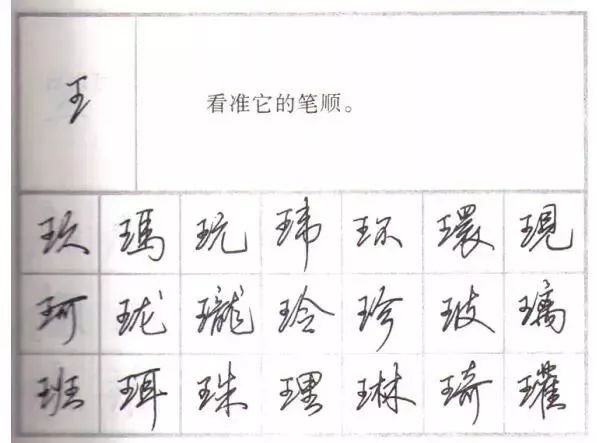 王 看准它的笔顺。
玖 瑪 玩 玮 环 環 現
珂 珑 瓏 玲 珍 玻 璃
班 珥 珠 理 琳 琦 瓘